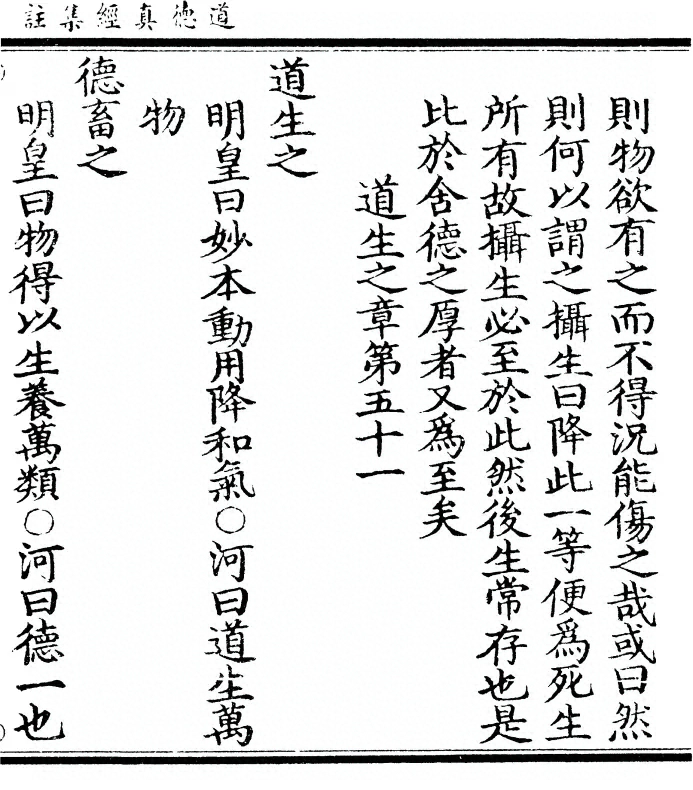 道德真經集註
則物欲有之而不得況能傷之哉或曰然
則何以謂之攝生曰降此一等便爲死生
所有故攝生必至於此然後生常存也是
比於含德之厚者又爲至矣
道生之章第五十一
道生之
明皇曰妙本動用降和氣○河曰道生萬
物
德畜之
明皇曰物得以生養萬類○河曰德一也